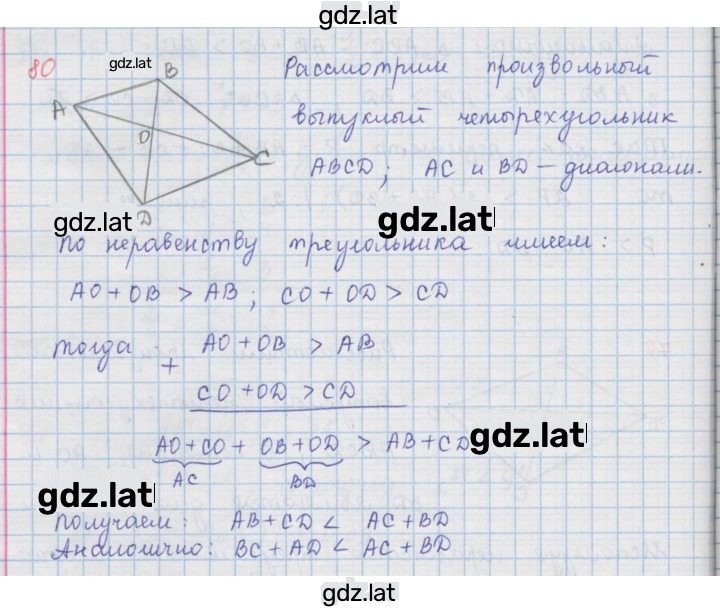 gdz.lat
80
gdz.lat
A
B
O
C
D
Рассмотрим произвольный
выпуклый четырехугольник
ABCD; AC и BD – диагонали.
gdz.lat
gdz.lat
По неравенству треугольника имеем:
AO + OB > AB; CO + OD > CD
тогда AO + OB > AB
+
CO + OD > CD
AO + CO + OB + OD > AB + CD
AC BD
gdz.lat
gdz.lat
Получаем: AB + CD < AC + BD
Аналогично: BC + AD < AC + BD
gdz.lat